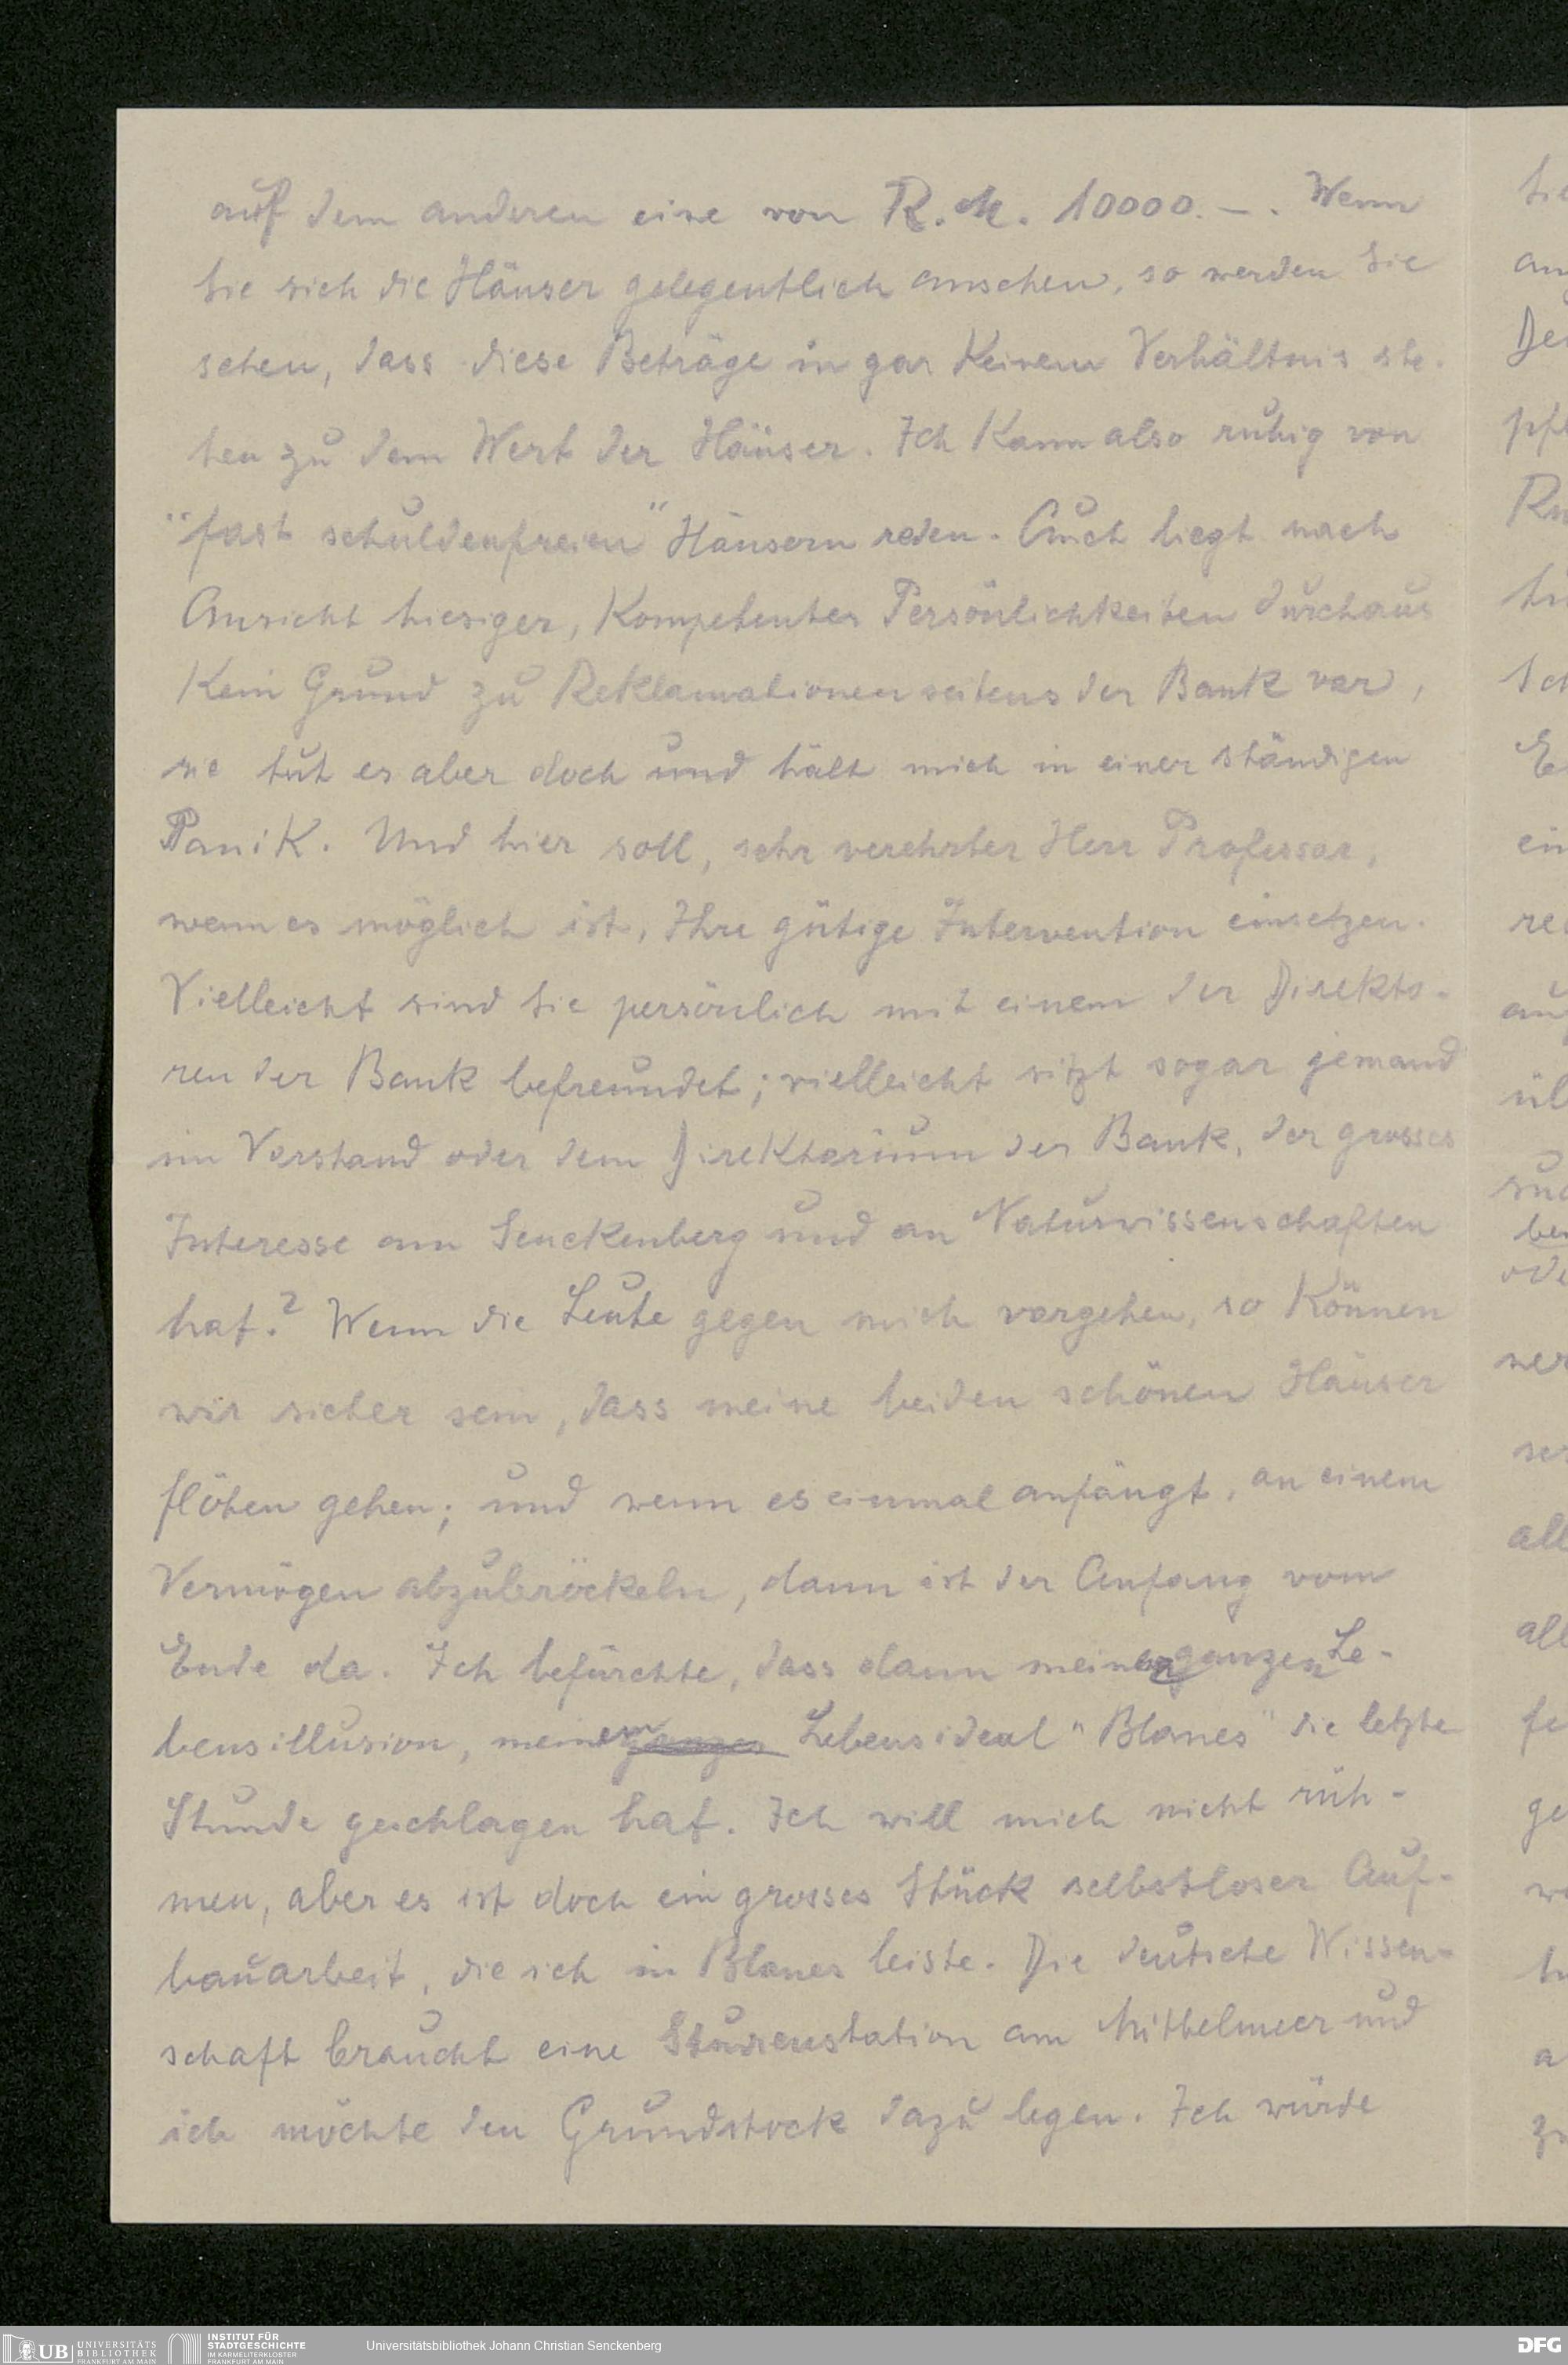 auf dem anderen eine von R.M. 10000.-. Wenn
Sie sich die Häuser gelegentlich ansehen, so werden Sie
sehen, dass diese Beträge in gar Keinem Verhältnis ste-
hen zu dem Wert der Häuser. Ich Kann also ruhig von
"fast schuldenfreien" Häusern reden. Auch liegt nach
Ansicht hiesiger, Kompetenter Persönlichkeiten durchaus
Kein Grund zu Reklamationen seitens der Bank vor,
sie tut es aber doch und hält mich in einer ständigen
Panik. Und hier soll, sehr verehrter Herr Professor,
wenn es möglich ist, Ihre gütige Intervention einsetzen.
Vielleicht sind Sie persönlich mit einem der Direkto-
ren der Bank befreundet; vielleicht sitzt sogar jemand
im Vorstand oder dem Direktorium der Bank, der grosses
Interesse am Senckenberg und an Naturwissenschaften
hat? Wenn die Leute gegen mich vorgehen, so Können
wir sicher sein, dass meine beiden schönen Häuser
flöten gehen; und wenn es einmal anfängt, an einem
Vermögen abzubröckeln, dann ist der Anfang vom
Ende da. Ich befürchte, dass dann meiner ganzen Le-
bensillusion, meinem ganzen Lebensideal "Blanes" die letzte
Stunde geschlagen hat. Ich will mich nicht rüh-
men, aber es ist doch ein grosses Stück selbstloser Auf-
bauarbeit, die ich in Blanes leiste. Die deutsche Wissen-
schaft braucht eine Studienstation am Mittelmeer und
ich möchte den Grundstock dazu legen. Ich würde
UB UNIVERSITÄTS
BIBLIOTHEK
FRANKFURT AM MAIN
INSTITUT FÜR
STADTGESCHICHTE
IM KARMELITERKLOSTER
FRANKFURT AM MAIN
Universitätsbibliothek Johann Christian Senckenberg
DFG